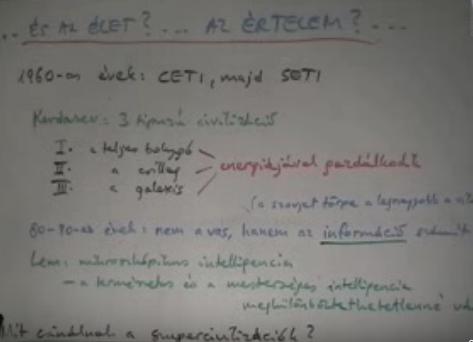 .. ÉS AZ ÉLET? ... AZ ÉRTELEM? ...
1960-as évek: CETI, majd SETI
Kardasev: 3 típusú civilizáció
I. a teljes bolygó
II. a csillag energiájával gazdálkodik
III. a galaxis
(a szovjet törpe a legnagyobb a
80-90-es évek: nem a vas, hanem az információ számít
Lem: mikroszkópikus intelligencia
- a természetes és a mesterséges intelligencia
megkülönböztethetetlenné
Mit csinálnak a szupercivilizációk?